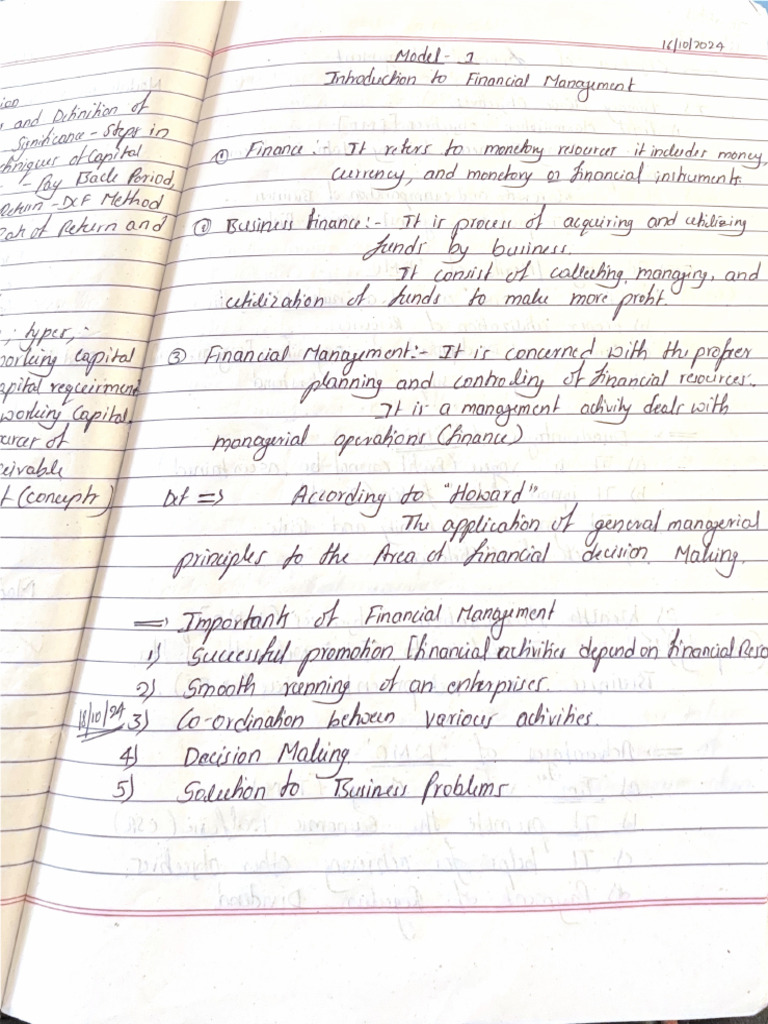 16/10/2024
Model - 1
Introduction to Financial Management
① Finance :- It refers to monetory resources it includes money,
currency, and monetory or financial instruments.
② Business finance:- It is process of acquiring and utilizing
funds by business.
It consist of collecting, managing, and
utilization of funds to make more profit.
③ Financial Management:- It is concerned with the proper
planning and controling of financial resources.
It is a management activity deals with
managerial operations (finance)
Def => According to "Howard"
The application of general managerial
principles to the Area of financial decision Making.
=> Importants of Financial Management
1) Successful promotion [financial activities depend on financial Reso
2) Smooth running of an enterprises.
18/10/24 3) Co-ordination between various activities.
4) Decision Making.
5) Solution to Business Problems
and Definition of
Significance - Steps in
of Capital
- Pay Back Period,
Return - DCF Method
of Return and
, types, -
working capital
capital requirement
working Capital.
of
t (concepts)